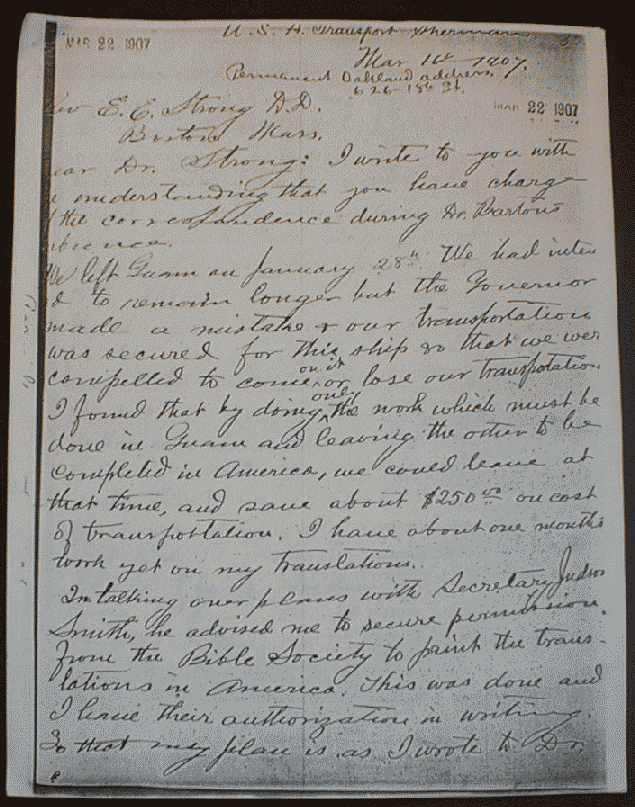 U. S. A. Transport Sherman
MAR 22 1907
Mar 1st 1907.
Permanent Oakland address,
626-18th St.
MAR 22 1907
ev E. E. Strong D.D.
Boston Mass.
ear Dr. Strong: I write to you with
understanding that you have charge
the correspondence during Dr. Barton's
bsence.
We left Guam on January 28th. We had inten
d to remain longer but the Governor
made a mistake & our transportation
was secured for this ship so that we wer
compelled to come on it or lose our transportation
I found that by doing only the work which must be
done in Guam and leaving the other to be
completed in America, we could leave at
that time, and save about $250.00 on cost
of transportation. I have about one months
work yet on my translations.
In talking over plans with Secretary Judson
Smith, he advised me to secure permission
from the Bible Society to print the trans-
lations in America. This was done and
I have their authorization in writing.
So that my plan is as I wrote to Dr.